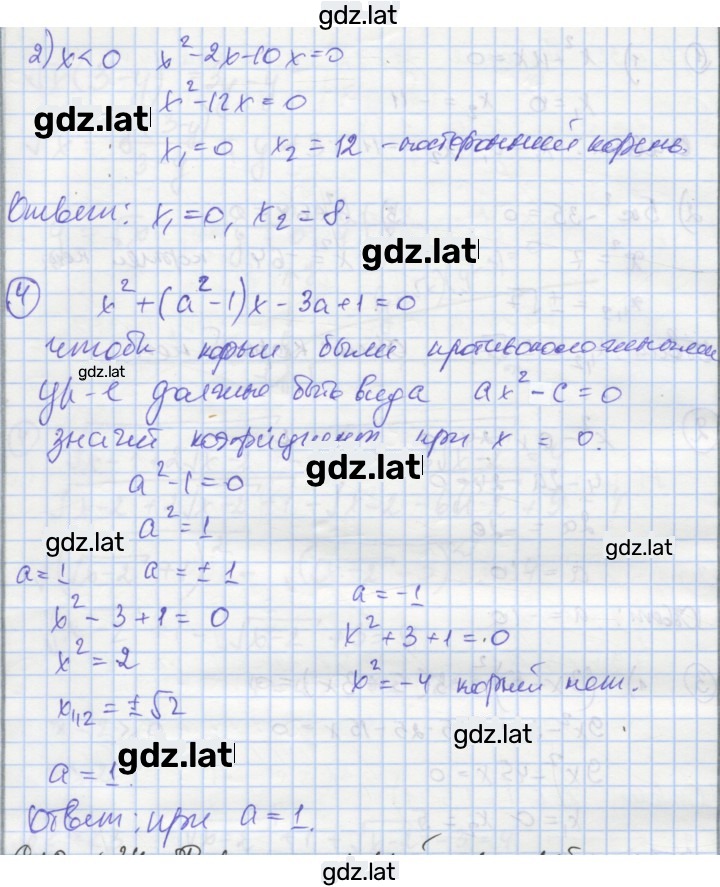 gdz.lat
2) x < 0 x² - 2x - 10x = 0
x² - 12x = 0
gdz.lat
x₁ = 0 x₂ = 12 - посторонний корень.
Ответ: x₁ = 0, x₂ = 8.
gdz.lat
④ x² + (a² - 1)x - 3a + 1 = 0
чтобы корни были противоположными
gdz.lat
ур-е должно быть вида ax² - c = 0
значит коэфициент при x = 0.
gdz.lat
a² - 1 = 0
a² = 1
gdz.lat
gdz.lat
a = 1 a = ± 1
a = -1
x² - 3 + 1 = 0
x² + 3 + 1 = 0
x² = 2
x² = -4 корней нет.
x₁,₂ = ± √2
gdz.lat
gdz.lat
a = 1.
Ответ: при a = 1.
gdz.lat